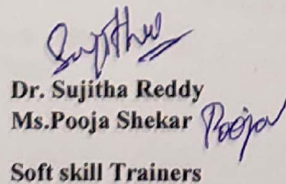 Sujitha
Dr. Sujitha Reddy
Ms.Pooja Shekar Pooja
Soft skill Trainers